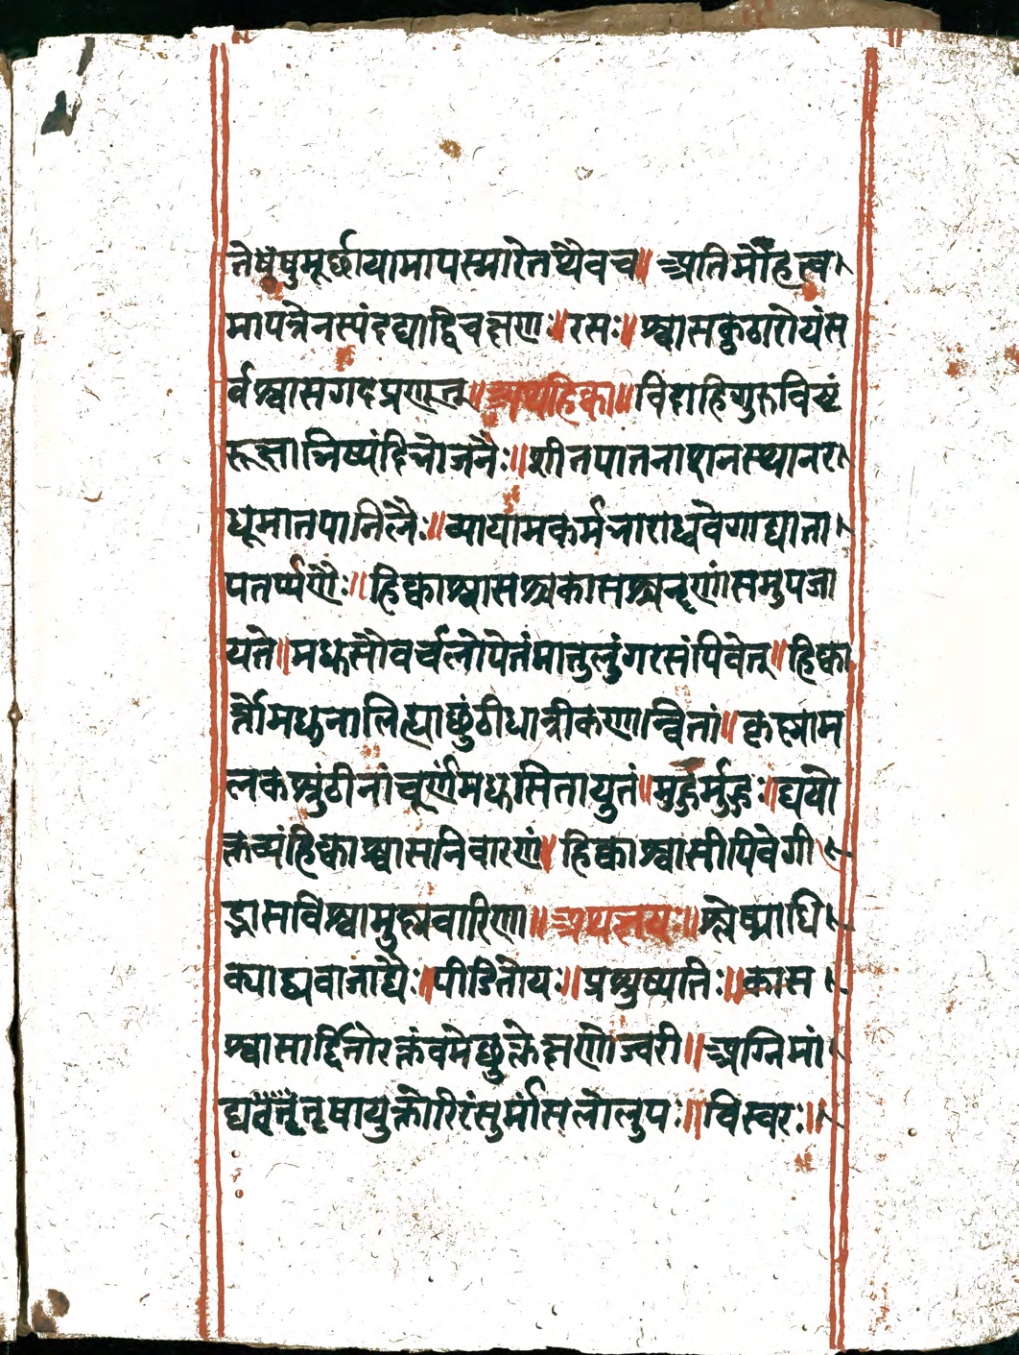 तेषुषुमूर्छायामापस्मारेतथैवच॥अतिमोहत्व
मापन्नेनस्पंदद्याद्विचक्षणः॥रसः॥श्वासकुठारोयंस
र्वश्वासगदप्रणुत्॥अथहिक्का॥विदाहिगुरुविष्टं
रूक्षाभिष्यंदिभोजनैः॥शीतपातनाशनस्थानर
धूमातपानिलैः॥व्यायामकर्मभाराध्ववेगाद्याता
पतर्प्पणैः॥हिक्काश्वासश्चकासश्चनृणांसमुपजा
यते॥मधुसौवर्चलोपेतंमातुलुंगरसंपिवेत्॥हिक्का
र्त्तोमधुनालिह्याछुंठीधात्रीकणान्वितां॥कृष्णाम
लकश्रुंठीनांचूर्णंमधुसितायुतं॥मुहुर्मुहुः॥द्ययो
क्तव्यंहिक्काश्वासनिवारणं॥हिक्काश्वासीपिवेगी
ड्रासविश्वामुक्षवारिणा॥अथक्षयः॥श्लेष्माधि
क्याद्यवाताद्यैः॥पीडितोयः॥प्रश्रुष्यतिः॥कास
श्वासार्द्दितोरक्तंवमेछुक्लेक्षणोज्वरी॥अग्निमां
तृषायुक्तोरिरंसुर्मांसलोलुपः॥विस्वरः॥